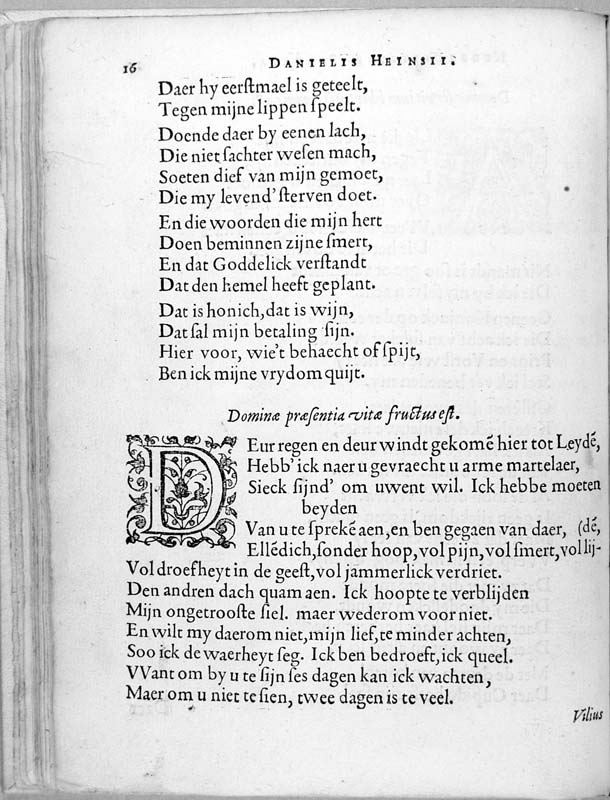 16 DANIELIS HEINSII.
Daer hy eerſtmael is geteelt,
Tegen mijne lippen ſpeelt.
Doende daer by eenen lach,
Die niet ſachter weſen mach,
Soeten dief van mijn gemoet,
Die my levend' ſterven doet.
En die woorden die mijn hert
Doen beminnen zijne ſmert,
En dat Goddelick verſtandt
Dat den hemel heeft geplant.
Dat is honich, dat is wijn,
Dat ſal mijn betaling ſijn.
Hier voor, wie't behaecht of ſpijt,
Ben ick mijne vrydom quijt.
Dominæ præſentia vitæ fructus eſt.
DEur regen en deur windt gekomē hier tot Leydē,
Hebb' ick naer u gevraecht u arme martelaer,
Sieck ſijnd' om uwent wil. Ick hebbe moeten
beyden
Van u te ſprekē aen, en ben gegaen van daer, (dē,
Ellēdich, ſonder hoop, vol pijn, vol ſmert, vol lij-
Vol droefheyt in de geeſt, vol jammerlick verdriet.
Den andren dach quam aen. Ick hoopte te verblijden
Mijn ongetrooſte ſiel. maer wederom voor niet.
En wilt my daerom niet, mijn lief, te minder achten,
Soo ick de waerheyt ſeg. Ick ben bedroeft, ick queel.
VVant om by u te ſijn ſes dagen kan ick wachten,
Maer om u niet te ſien, twee dagen is te veel.
Vilius